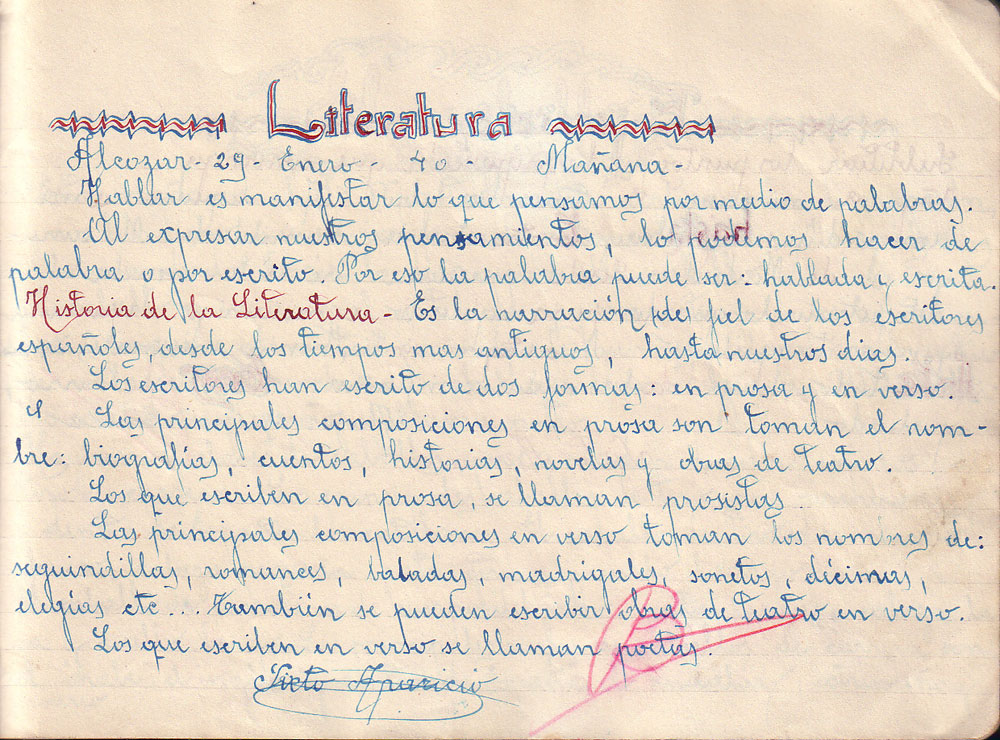 Literatura
Alcozar 29 Enero - 40 - Mañana -
Hablar es manifestar lo que pensamos por medio de palabras.
Al expresar nuestros pensamientos, lo podemos hacer de
palabra o por escrito. Por eso la palabra puede ser: hablada y escrita.
Historia de la Literatura - Es la narración fiel de los escritores
españoles, desde los tiempos mas antiguos, hasta nuestros dias.
Los escritores han escrito de dos formas: en prosa y en verso.
Las principales composiciones en prosa son toman el nom-
bre: biografías, cuentos, historias, novelas y obras de teatro.
Los que escriben en prosa, se llaman prosistas..
Las principales composiciones en verso toman los nombres de:
seguindillas, romances, baladas, madrigales, sonetos, décimas,
elegías etc... También se pueden escribir obras de teatro en verso.
Los que escriben en verso se llaman poetas.
Sixto Aparicio